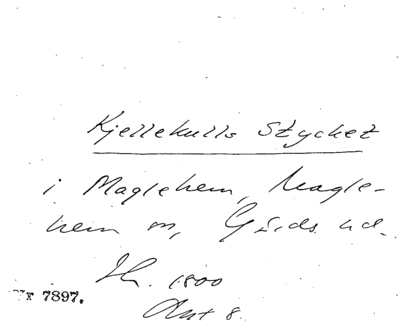 Kjellekulls Stycket
i Maglehem, Magle-
hem sn, Gärds hd.
Sk. 1800
Nr 7897.
Akt 8.